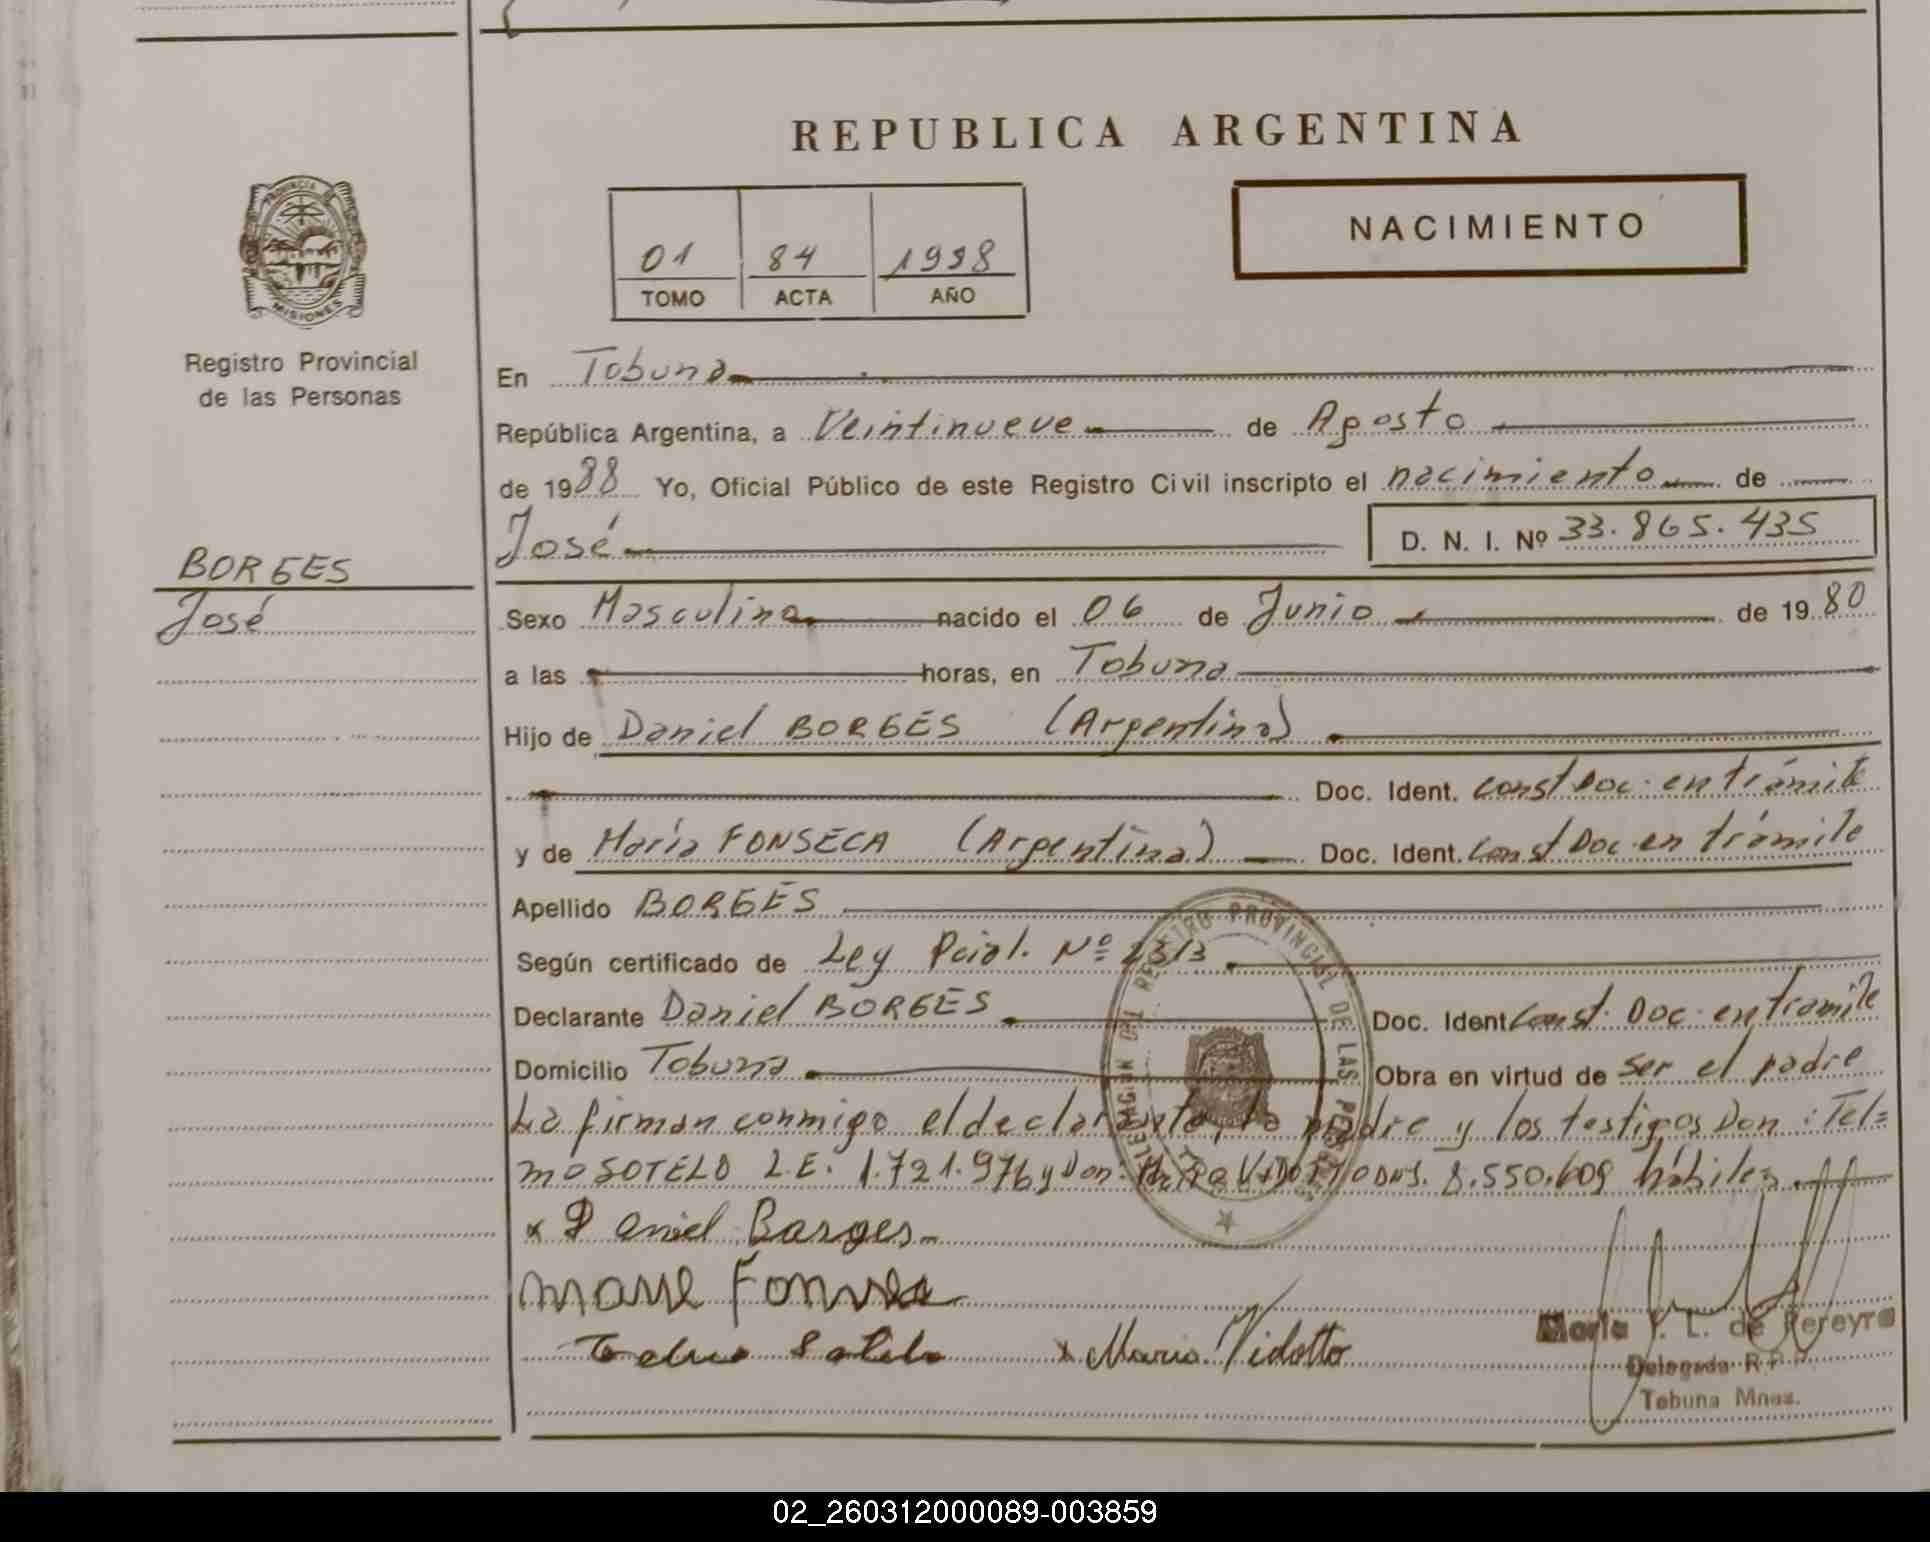 REPUBLICA ARGENTINA
NACIMIENTO
01 84 1988
TOMO ACTA AÑO
PROVINCIA DE MISIONES
Registro Provincial
de las Personas
BORGES
José
En Tobuna
República Argentina, a Veintinueve de Agosto
de 1988 Yo, Oficial Público de este Registro Civil inscripto el nacimiento de
José D. N. I. Nº 33.865.435
Sexo Masculino nacido el 06 de Junio de 1980
a las horas, en Tobuna
Hijo de Daniel BORGES (Argentino)
Doc. Ident. Const Doc. en trámite
y de María FONSECA (Argentina) Doc. Ident. Const Doc. en trámite
Apellido BORGES
Según certificado de Ley Pcial. Nº 2313
Declarante Daniel BORGES Doc. Ident Const. Doc. en tramite
Domicilio Tobuna Obra en virtud de ser el padre
La firman conmigo el declarante, la madre y los testigos Don: Tel=
mo SOTELO L.E. 1.721.976 y Don: 8.550.609 hábiles
REGISTRO PROVINCIAL DE LAS PERSONAS
x Daniel Barges
x Mario Vidotto
María L. de Pereyra
Delegada R.P.P.
Tobuna Mnes.
02_260312000089-003859